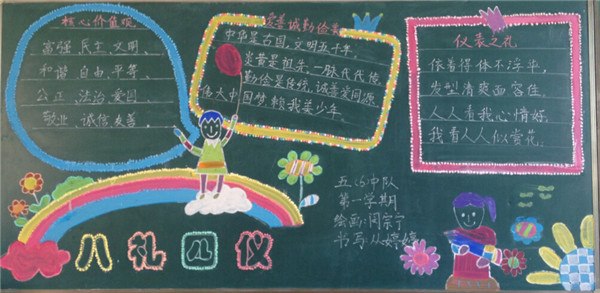 核心价值观
富强 民主 文明
和谐 自由 平等
公正 法治 爱国
敬业 诚信 友善
爱善诚勤俭美
中华是古国,文明五千年。
炎黄是祖先,一脉代代传
勤俭是传统,诚善爱同源
伟大中国梦 赖我美少年。
仪表之花
依着得体不浮华,
发型清爽面容佳。
人人看我心情好,
我看人人似赏花。
八礼四仪
五(6)中队
第一学期
绘画:周宗宁
书写:从婷婷